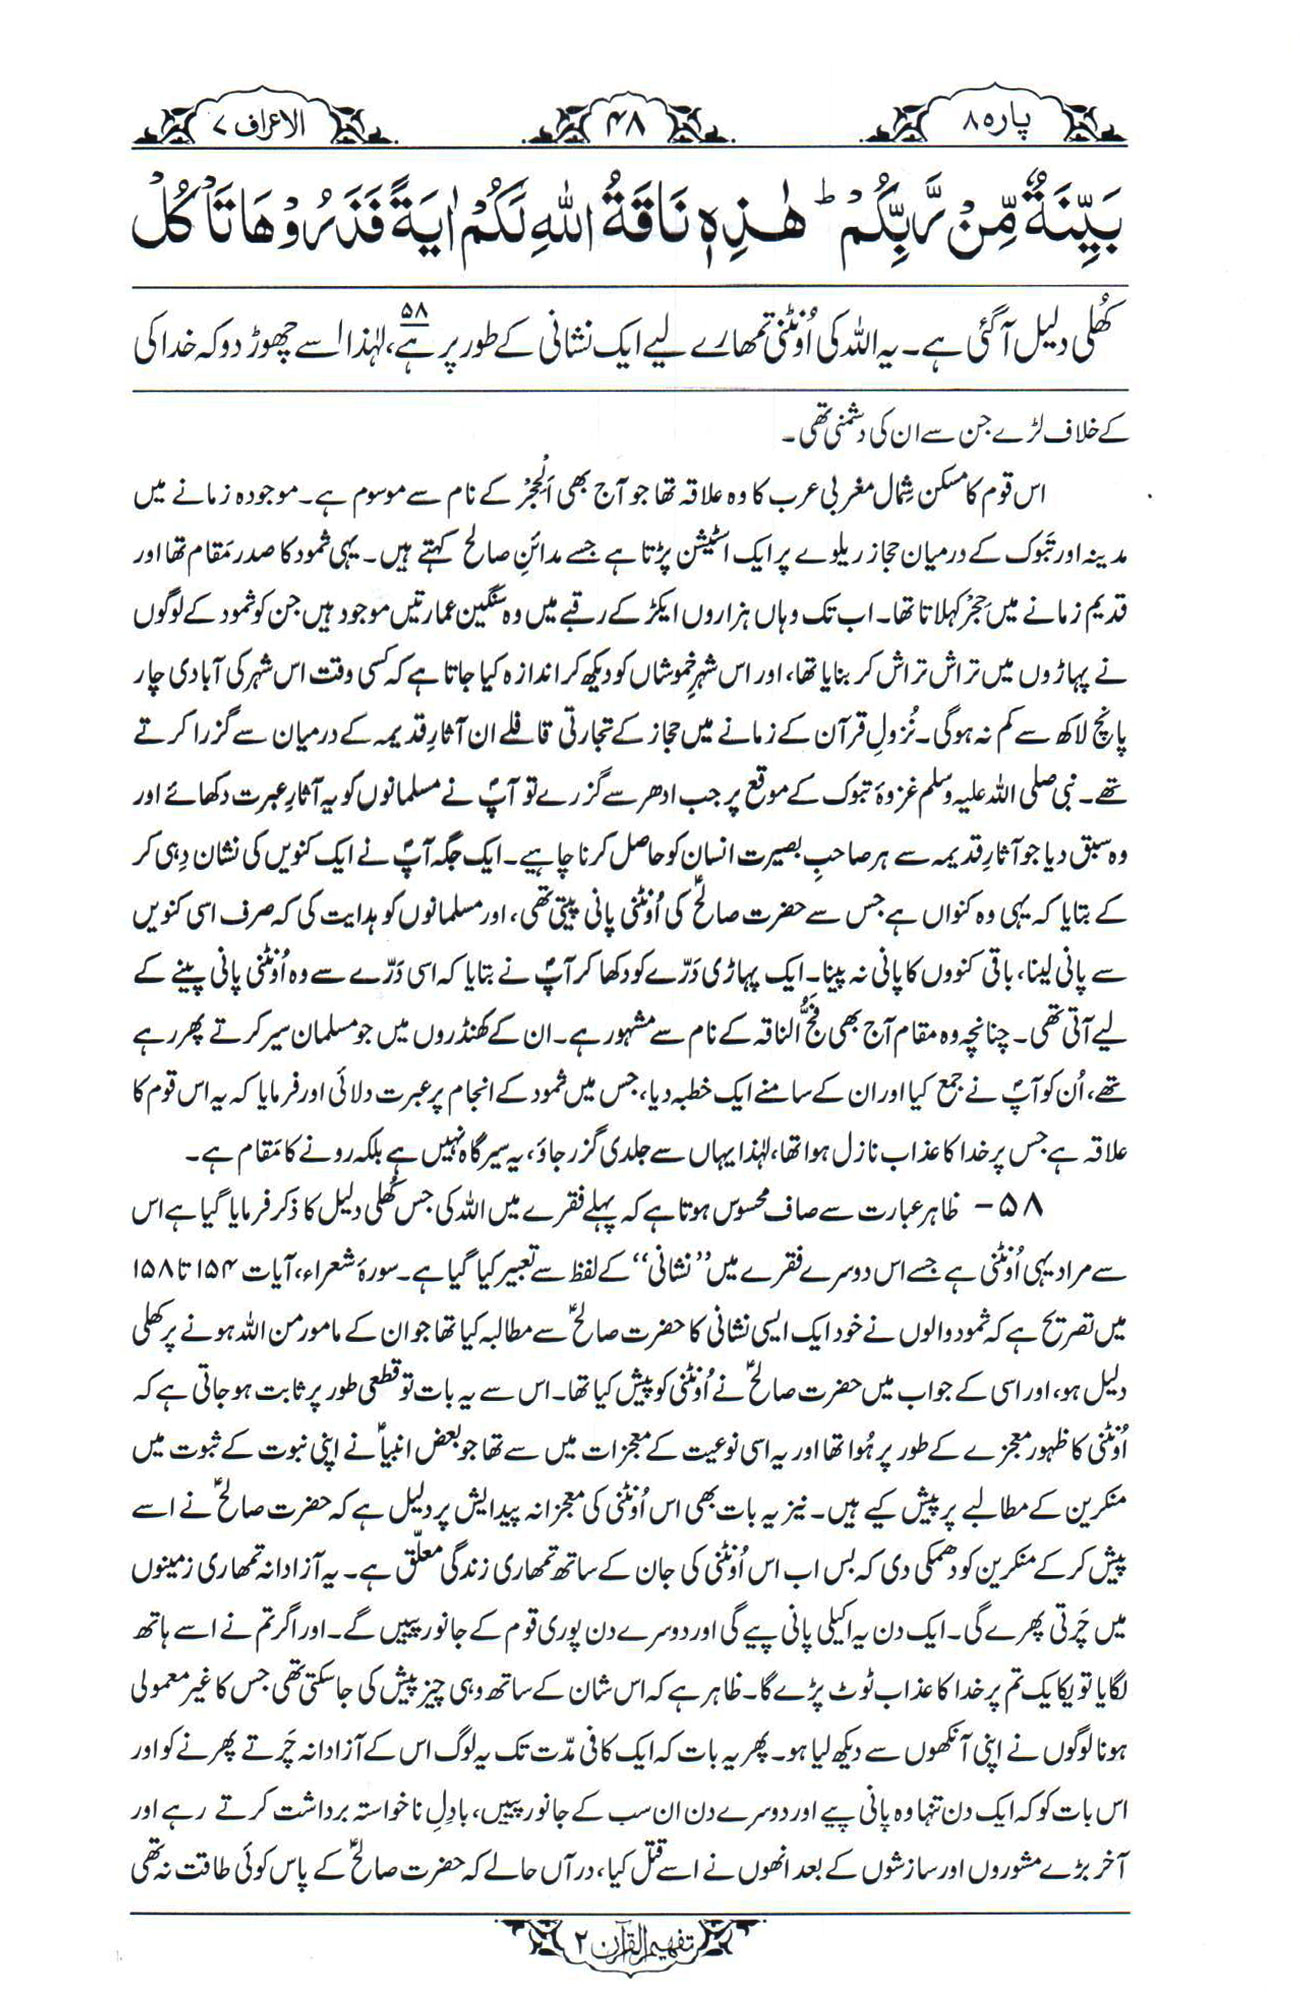 پارہ ۸
۴۸
الاعراف ۷
بَيِّنَةٌ مِّنْ رَّبِّكُمْ ؕ هٰذِهٖ نَاقَةُ اللّٰهِ لَكُمْ اٰيَةً فَذَرُوْهَا تَاْكُلْ
کُھلی دلیل آگئی ہے۔ یہ اللہ کی اُونٹنی تمھارے لیے ایک نشانی کے طور پر ہے،۵۸ لہٰذا اسے چھوڑ دو کہ خدا کی
کے خلاف لڑے جن سے ان کی دشمنی تھی۔
اس قوم کا مسکن شمال مغربی عرب کا وہ علاقہ تھا جو آج بھی اَلحِجْر کے نام سے موسوم ہے۔ موجودہ زمانے میں
مدینہ اور تَبُوک کے درمیان حجاز ریلوے پر ایک اسٹیشن پڑتا ہے جسے مدائنِ صالح کہتے ہیں۔ یہی ثمود کا صدر مَقام تھا اور
قدیم زمانے میں حِجْر کہلاتا تھا۔ اب تک وہاں ہزاروں ایکڑ کے رقبے میں وہ سنگین عمارتیں موجود ہیں جن کو ثمود کے لوگوں
نے پہاڑوں میں تراش تراش کر بنایا تھا، اور اس شہرِ خموشاں کو دیکھ کر اندازہ کیا جاتا ہے کہ کسی وقت اس شہر کی آبادی چار
پانچ لاکھ سے کم نہ ہوگی۔ نُزولِ قرآن کے زمانے میں حجاز کے تجارتی قافلے ان آثارِ قدیمہ کے درمیان سے گزرا کرتے
تھے۔ نبی صلی اللہ علیہ وسلم غزوۂ تبوک کے موقع پر جب ادھر سے گزرے تو آپؐ نے مسلمانوں کو یہ آثارِ عبرت دکھائے اور
وہ سبق دیا جو آثارِ قدیمہ سے ہر صاحبِ بصیرت انسان کو حاصل کرنا چاہیے۔ ایک جگہ آپؐ نے ایک کنویں کی نشان دِہی کر
کے بتایا کہ یہی وہ کنواں ہے جس سے حضرت صالحؑ کی اُونٹنی پانی پیتی تھی، اور مسلمانوں کو ہدایت کی کہ صرف اسی کنویں
سے پانی لینا، باقی کنووں کا پانی نہ پینا۔ ایک پہاڑی دَرّے کو دکھا کر آپؐ نے بتایا کہ اسی دَرّے سے وہ اُونٹنی پانی پینے کے
لیے آتی تھی۔ چنانچہ وہ مقام آج بھی فَجُّ الناقہ کے نام سے مشہور ہے۔ ان کے کھنڈروں میں جو مسلمان سیر کرتے پھر رہے
تھے، اُن کو آپؐ نے جمع کیا اور ان کے سامنے ایک خطبہ دیا، جس میں ثمود کے انجام پر عبرت دلائی اور فرمایا کہ یہ اس قوم کا
علاقہ ہے جس پر خدا کا عذاب نازل ہوا تھا، لہٰذا یہاں سے جلدی گزر جاؤ، یہ سیر گاہ نہیں ہے بلکہ رونے کا مَقام ہے۔
۵۸ - ظاہر عبارت سے صاف محسوس ہوتا ہے کہ پہلے فقرے میں اللہ کی جس کُھلی دلیل کا ذکر فرمایا گیا ہے اس
سے مراد یہی اُونٹنی ہے جسے اس دوسرے فقرے میں ”نشانی“ کے لفظ سے تعبیر کیا گیا ہے۔ سورۂ شعراء، آیات ۱۵۴ تا ۱۵۸
میں تصریح ہے کہ ثمود والوں نے خود ایک ایسی نشانی کا حضرت صالحؑ سے مطالبہ کیا تھا جو ان کے مامور من اللہ ہونے پر کھلی
دلیل ہو، اور اسی کے جواب میں حضرت صالحؑ نے اُونٹنی کو پیش کیا تھا۔ اس سے یہ بات تو قطعی طور پر ثابت ہو جاتی ہے کہ
اُونٹنی کا ظہور معجزے کے طور پر ہُوا تھا اور یہ اسی نوعیت کے معجزات میں سے تھا جو بعض انبیاؑ نے اپنی نبوت کے ثبوت میں
منکرین کے مطالبے پر پیش کیے ہیں۔ نیز یہ بات بھی اس اُونٹنی کی معجزانہ پیدایش پر دلیل ہے کہ حضرت صالحؑ نے اسے
پیش کر کے منکرین کو دھمکی دی کہ بس اب اس اُونٹنی کی جان کے ساتھ تمھاری زندگی معلّق ہے۔ یہ آزادانہ تمھاری زمینوں
میں چَرتی پھرے گی۔ ایک دن یہ اکیلی پانی پیے گی اور دوسرے دن پوری قوم کے جانور پییں گے۔ اور اگر تم نے اسے ہاتھ
لگایا تو یکایک تم پر خدا کا عذاب ٹوٹ پڑے گا۔ ظاہر ہے کہ اس شان کے ساتھ وہی چیز پیش کی جا سکتی تھی جس کا غیر معمولی
ہونا لوگوں نے اپنی آنکھوں سے دیکھ لیا ہو۔ پھر یہ بات کہ ایک کافی مدّت تک یہ لوگ اس کے آزادانہ چَرتے پھرنے کو اور
اس بات کو کہ ایک دن تنہا وہ پانی پیے اور دوسرے دن ان سب کے جانور پییں، بادِلِ ناخواستہ برداشت کرتے رہے اور
آخر بڑے مشوروں اور سازشوں کے بعد انھوں نے اسے قتل کیا، درآں حالے کہ حضرت صالحؑ کے پاس کوئی طاقت نہ تھی
تفہیم القرآن ۲